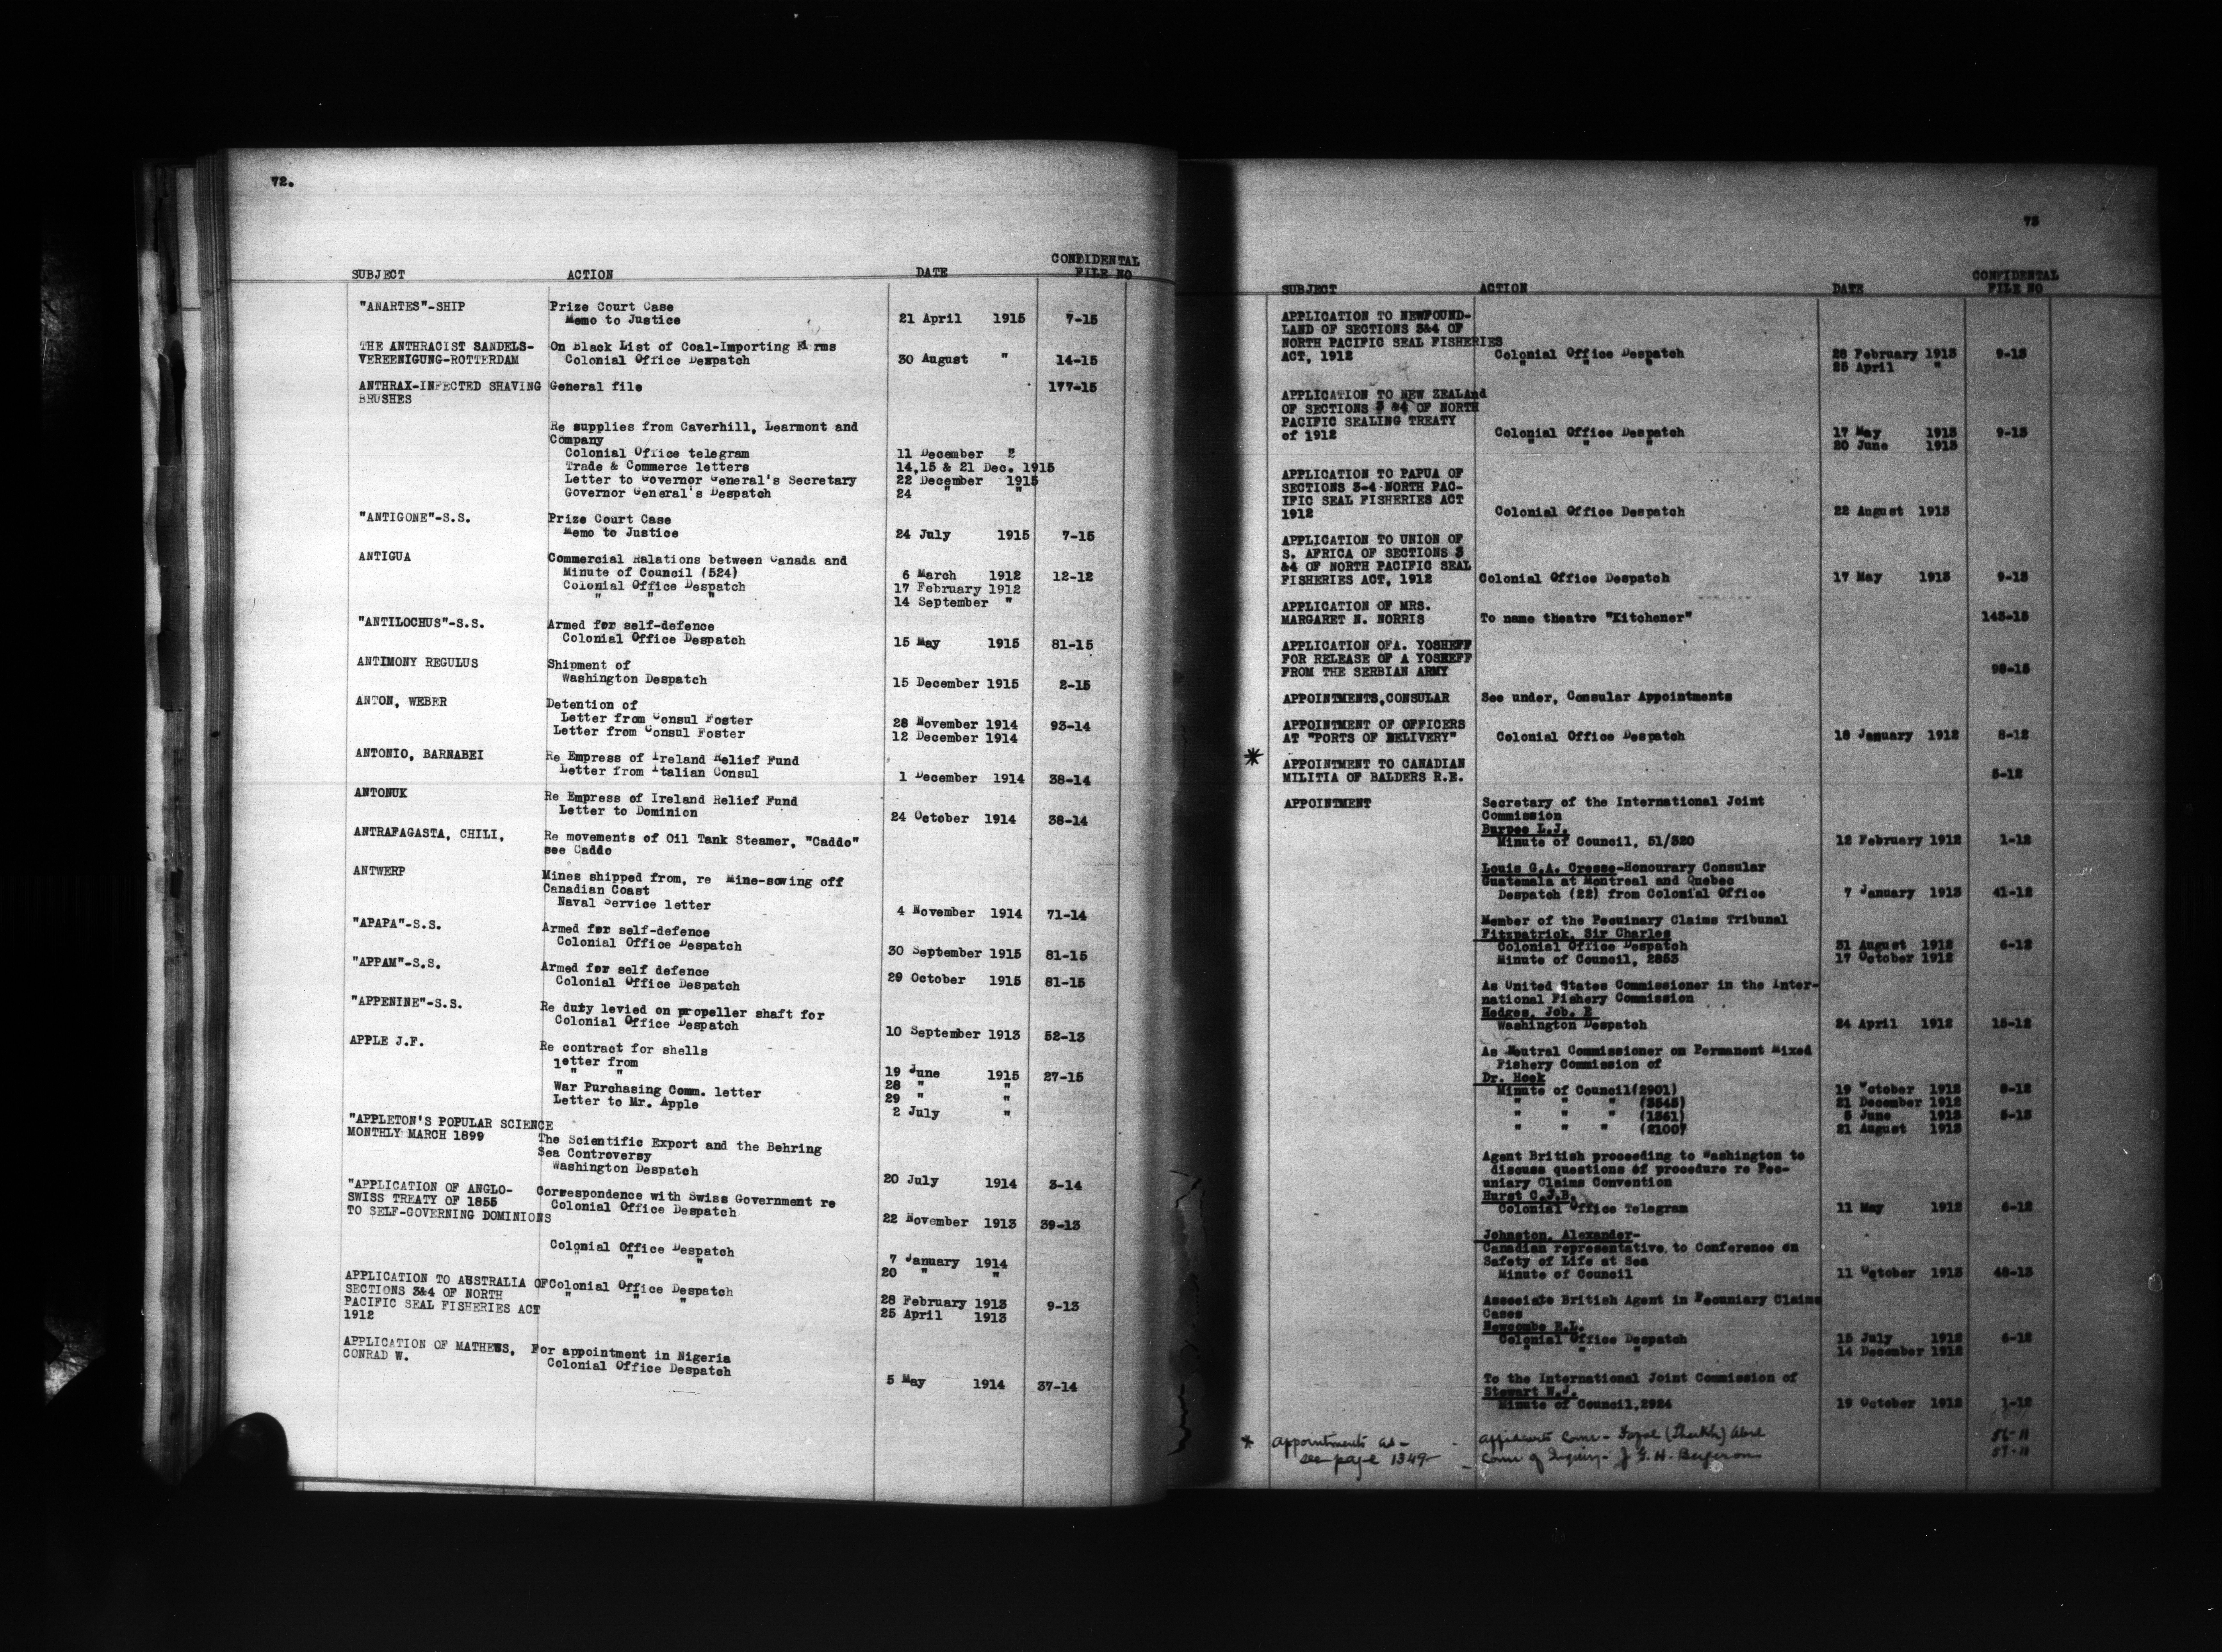 72.
SUBJECT ACTION DATE CONFIDENTAL FILE NO
"ANARTES"-SHIP Prize Court Case
Memo to Justice 21 April 1915 7-15
THE ANTHRACIST SANDELS- On Black List of Coal-Importing Firms
VEREENIGUNG-ROTTERDAM Colonial Office Despatch 30 August " 14-15
ANTHRAX-INFECTED SHAVING General file 177-15
BRUSHES
Re supplies from Caverhill, Learmont and
Company
Colonial Office telegram 11 December
Trade & Commerce letters 14,15 & 21 Dec. 1915
Letter to Governor General's Secretary 22 December 1915
Governor General's Despatch 24 " "
"ANTIGONE"-S.S. Prize Court Case
Memo to Justice 24 July 1915 7-15
ANTIGUA Commercial Ralations between Canada and
Minute of Council (524) 6 March 1912 12-12
Colonial Office Despatch 17 February 1912
" " " 14 September "
"ANTILOCHUS"-S.S. Armed for self-defence
Colonial Office Despatch 15 May 1915 81-15
ANTIMONY REGULUS Shipment of
Washington Despatch 15 December 1915 2-15
ANTON, WEBER Detention of
Letter from Consul Foster 28 November 1914 93-14
Letter from Consul Foster 12 December 1914
ANTONIO, BARNABEI Re Empress of Ireland Relief Fund
Letter from Italian Consul 1 December 1914 38-14
ANTONUK Re Empress of Ireland Relief Fund
Letter to Dominion 24 October 1914 38-14
ANTRAFAGASTA, CHILI, Re movements of Oil Tank Steamer, "Caddo"
see Caddo
ANTWERP Mines shipped from, re Mine-sowing off
Canadian Coast
Naval Service letter 4 November 1914 71-14
"APAPA"-S.S. Armed for self-defence
Colonial Office Despatch 30 September 1915 81-15
"APPAM"-S.S. Armed for self defence
Colonial Office Despatch 29 October 1915 81-15
"APPENINE"-S.S. Re duty levied on propeller shaft for
Colonial Office Despatch 10 September 1913 52-13
APPLE J.F. Re contract for shells
letter from 19 June 1915 27-15
" " 28 " "
War Purchasing Comm. letter 29 " "
Letter to Mr. Apple 2 July "
"APPLETON'S POPULAR SCIENCE
MONTHLY MARCH 1899 The Scientific Export and the Behring
Sea Controversy
Washington Despatch 20 July 1914 3-14
"APPLICATION OF ANGLO- Correspondence with Swiss Government re
SWISS TREATY OF 1855 Colonial Office Despatch 22 November 1913 39-13
TO SELF-GOVERNING DOMINIONS
Colonial Office Despatch 7 January 1914
" " " 20 " "
APPLICATION TO AUSTRALIA OF Colonial Office Despatch 28 February 1913 9-13
SECTIONS 3&4 OF NORTH " " " 25 April 1913
PACIFIC SEAL FISHERIES ACT
1912
APPLICATION OF MATHEWS, For appointment in Nigeria
CONRAD W. Colonial Office Despatch 5 May 1914 37-14
73
SUBJECT ACTION DATE CONFIDENTAL FILE NO
APPLICATION TO NEWFOUND-
LAND OF SECTIONS 3&4 OF
NORTH PACIFIC SEAL FISHERIES
ACT, 1912 Colonial Office Despatch 28 February 1913 9-13
" " " 25 April "
APPLICATION TO NEW ZEALAnd
OF SECTIONS 3 &4 OF NORTH
PACIFIC SEALING TREATY
of 1912 Colonial Office Despatch 17 May 1913 9-13
" " " 20 June 1913
APPLICATION TO PAPUA OF
SECTIONS 3-4 NORTH PAC-
IFIC SEAL FISHERIES ACT
1912 Colonial Office Despatch 22 August 1913
APPLICATION TO UNION OF
S. AFRICA OF SECTIONS 3
&4 OF NORTH PACIFIC SEAL
FISHERIES ACT, 1912 Colonial Office Despatch 17 May 1913 9-13
APPLICATION OF MRS.
MARGARET N. NORRIS To name theatre "Kitchener" 143-15
APPLICATION OFA. YOSHEFF
FOR RELEASE OF A YOSHEFF
FROM THE SERBIAN ARMY 98-15
APPOINTMENTS,CONSULAR See under, Consular Appointments
APPOINTMENT OF OFFICERS
AT "PORTS OF DELIVERY" Colonial Office Despatch 18 January 1912 8-12
* APPOINTMENT TO CANADIAN
MILITIA OF BALDERS R.E. 5-12
APPOINTMENT Secretary of the International Joint
Commission
Burpee L.J.
Minute of Council, 51/320 12 February 1912 1-12
Louis G.A. Cresse-Honourary Consular
Guatemala at Montreal and Quebec
Despatch (22) from Colonial Office 7 January 1913 41-12
Member of the Pecuinary Claims Tribunal
Fitzpatrick, Sir Charles
Colonial Office Despatch 31 August 1912 6-12
Minute of Council, 2853 17 October 1912
As United States Commissioner in the Inter-
national Fishery Commission
Hedges, Job. E
Washington Despatch 24 April 1912 15-12
As Neutral Commissioner on Permanent Mixed
Fishery Commission of
Dr. Hoek
Minute of Council(2901) 19 October 1912 8-12
" " " (3545) 21 December 1912
" " " (1361) 5 June 1913 5-13
" " " (2100) 21 August 1913
Agent British proceeding to Washington to
discuss questions of procedure re Pec-
uniary Claims Convention
Hurst C.J.B.
Colonial Office Telegram 11 May 1912 6-12
Johnston, Alexander-
Canadian representative to Conference on
Safety of Life at Sea
Minute of Council 11 October 1913 48-13
Associate British Agent in Pecuniary Claims
Cases
Newcombe E.L.
Colonial Office Despatch 15 July 1912 6-12
" " " 14 December 1912
To the International Joint Commission of
Stewart W.J.
Minute of Council,2924 19 October 1912 1-12
* Appointments as - Affidavits Comr - (Sheikh) Abel 56-11
see page 1349 Comr of Inquiry - J G. H. Bergeron 57-11